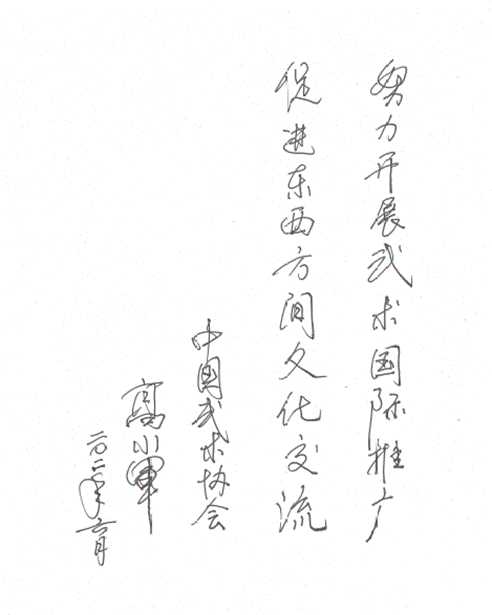 努力开展武术国际推广
促进东西方间文化交流
中国武术协会
高小军
二〇一二年六月